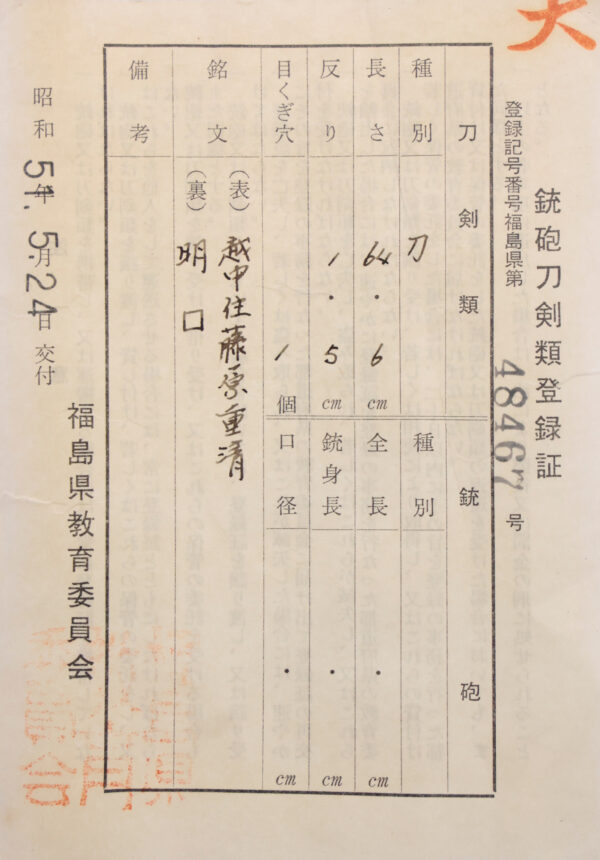 銃砲刀剣類登録証
登録記号番号福島県第 48467 号
刀剣類
銃砲
種別 刀
種別
長さ 64.6 cm
全長 . cm
反り 1.5 cm
銃身長 . cm
目くぎ穴 1 個
口径 . cm
銘文 (表) 越中住藤原重清
(裏) 明 □
備考
昭和 51年 5月 24日 交付
福島県教育委員会